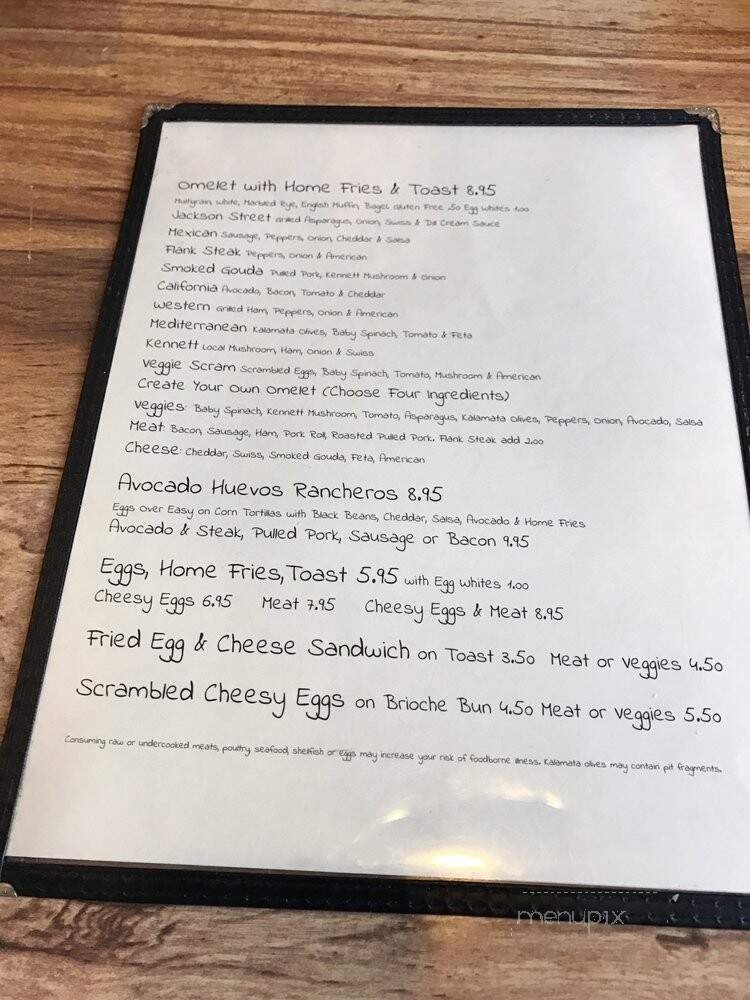 Omelet with Home Fries & Toast 8.95
Multigrain, White, Marbled Rye, English Muffin, Bagel, Gluten Free .50 Egg Whites 1.00
Jackson Street Grilled Asparagus, Onion, Swiss & Dill Cream Sauce
Mexican Sausage, Peppers, Onion, Cheddar & Salsa
Flank Steak Peppers, Onion & American
Smoked Gouda Pulled Pork, Kennett Mushroom & Onion
California Avocado, Bacon, Tomato & Cheddar
Western Grilled Ham, Peppers, Onion & American
Mediterranean Kalamata Olives, Baby Spinach, Tomato & Feta
Kennett Local Mushroom, Ham, Onion & Swiss
Veggie Scram Scrambled Eggs, Baby Spinach, Tomato, Mushroom & American
Create Your Own Omelet (Choose Four Ingredients)
Veggies: Baby Spinach, Kennett Mushroom, Tomato, Asparagus, Kalamata Olives, Peppers, Onion, Avocado, Salsa
Meat: Bacon, Sausage, Ham, Pork Roll, Roasted Pulled Pork. Flank Steak add 2.00
Cheese: Cheddar, Swiss, Smoked Gouda, Feta, American
Avocado Huevos Rancheros 8.95
Eggs Over Easy on Corn Tortillas with Black Beans, Cheddar, Salsa, Avocado & Home Fries
Avocado & Steak, Pulled Pork, Sausage or Bacon 9.95
Eggs, Home Fries, Toast 5.95 with Egg Whites 1.00
Cheesy Eggs 6.95 Meat 7.95 Cheesy Eggs & Meat 8.95
Fried Egg & Cheese Sandwich on Toast 3.50 Meat or Veggies 4.50
Scrambled Cheesy Eggs on Brioche Bun 4.50 Meat or Veggies 5.50
Consuming raw or undercooked meats, poultry, seafood, shellfish or eggs may increase your risk of foodborne illness. Kalamata olives may contain pit fragments.
menupix